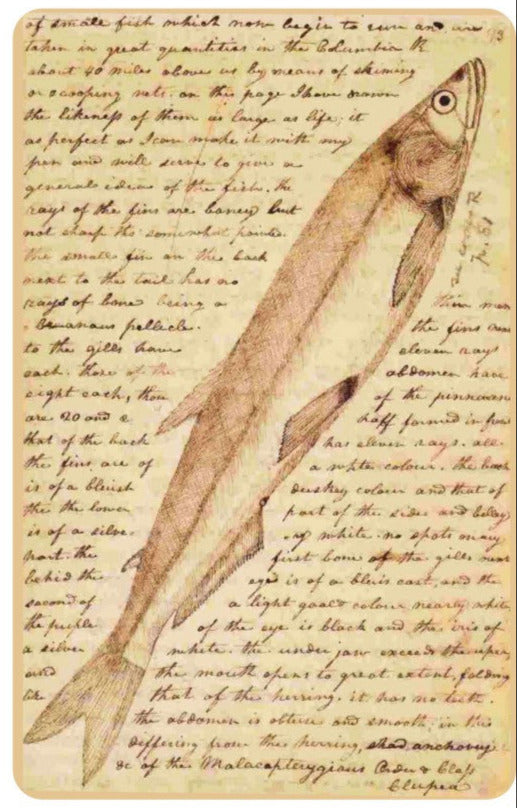 of small fish which now begin to run and are 93
taken in great quantities in the Columbia R
about 40 miles above us by means of skiming
or scooping nets. on this page I have drawn
the likeness of them as large as life; it
as perfect as I can make it with my
pen and will serve to give a
general idea of the fish. the
rays of the fins are boney but
not sharp tho' somewhat pointed.
the small fin on the back
next to the tail has no
rays of bone being a thin mem
branaus pellicle. the fins next
to the gills have eleven rays
each. those of the abdomen have
eight each, those of the pinnovani
are 20 and 2 half formed in front
that of the back has eleven rays. all
the fins are of a white colour. the back
is of a bleuish duskey colour and that of
the the lower part of the sides and belley
is of a silve- -ry white. no spots on any
part. the first bone of the gills next
behid the eye is of a bleuis cast, and the
second of a light goald colour nearly white
the puple of the eye is black and the iris of
a silver white. the under jaw exceeds the uper,
and the mouth opens to great extent, folding
like that of the herring. it has no teeth.
the abdomen is obtuse and smooth; in this
differing from the herring, shad, anchovey
&c of the Malacopterygious Order & Class
Clupea